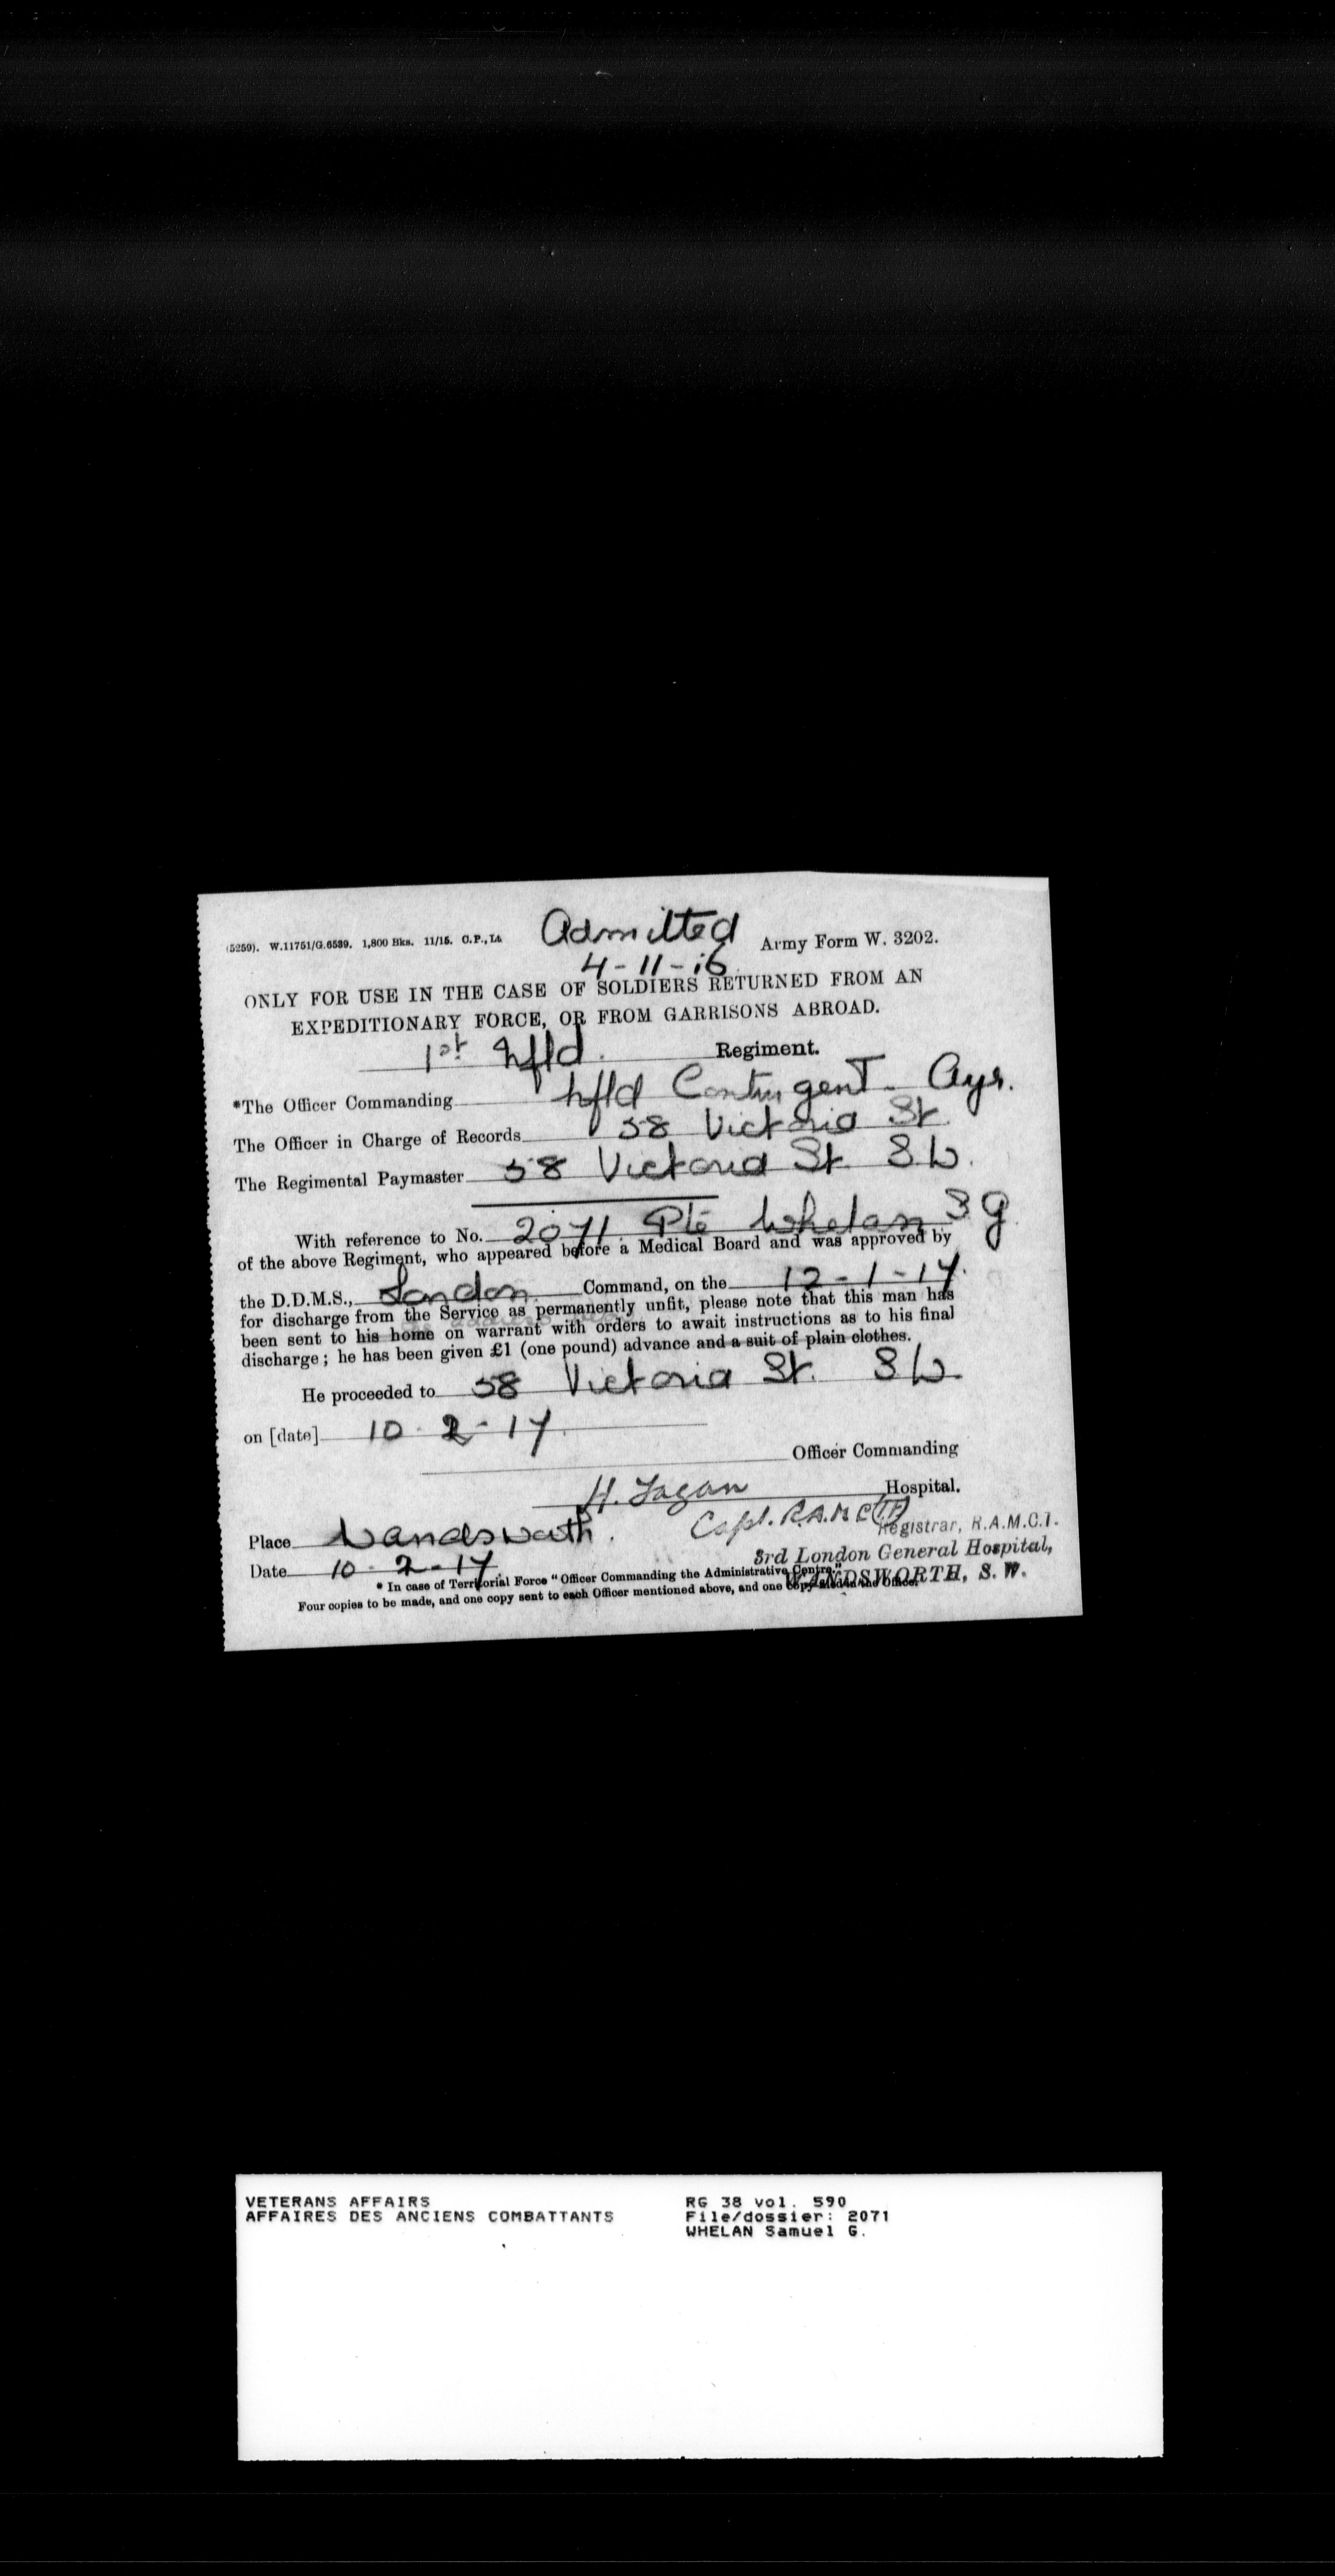 (5259). W.11751/G.6589. 1,800 Bks. 11/15. C.P., Ld. Admitted Army Form W. 3202.
4-11-16
ONLY FOR USE IN THE CASE OF SOLDIERS RETURNED FROM AN
EXPEDITIONARY FORCE, OR FROM GARRISONS ABROAD.
1st Nfld. Regiment.
*The Officer Commanding Nfld Contingent - Ayr.
The Officer in Charge of Records 58 Victoria St.
The Regimental Paymaster 58 Victoria St. S W.
With reference to No. 2071. Pte Whelan S G
of the above Regiment, who appeared before a Medical Board and was approved by
the D.D.M.S., London. Command, on the 12-1-17.
for discharge from the Service as permanently unfit, please note that this man has
been sent to his home on warrant with orders to await instructions as to his final
discharge; he has been given £1 (one pound) advance and a suit of plain clothes.
He proceeded to 58 Victoria St. S W.
on [date] 10-2-17.
Officer Commanding
H. Hospital.
Capt. R.A.M.C (TF)
Registrar, R.A.M.C.T.
Place Wandsworth.
3rd London General Hospital,
Date 10-2-17.
WANDSWORTH, S.W.
* In case of Territorial Force "Officer Commanding the Administrative Centre."
Four copies to be made, and one copy sent to each Officer mentioned above, and one copy filed in the Office.
VETERANS AFFAIRS RG 38 vol. 590
AFFAIRES DES ANCIENS COMBATTANTS File/dossier: 2071
WHELAN Samuel G.